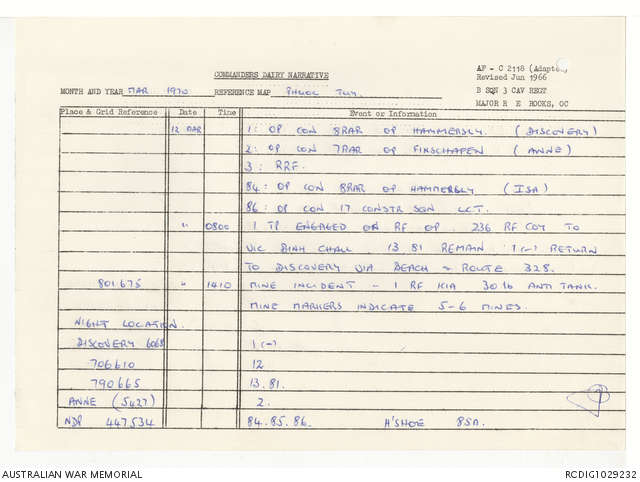 AF - C 2118 (Adapted)
Revised Jun 1966
COMMANDERS DAIRY NARRATIVE
B SQN 3 CAV REGT
MAJOR R E ROOKS, OC
MONTH AND YEAR MAR 1970 REFERENCE MAP PHUOC TUY.
Place & Grid Reference Date Time Event or Information
12 MAR 1: OP CON 8RAR OP HAMMERSLY. (DISCOVERY)
2: OP CON 7RAR OP FINSCHAFEN (ANNE)
3: RRF.
84: OP CON 8RAR OP HAMMERSLY (ISA)
86: OP CON 17 CONSTR SQN LCT.
" 0800 1 TP ENGAGED ON RF OP. 236 RF COY TO
VIC BINH CHAU 13 81 REMAIN 1(-) RETURN
TO DISCOVERY VIA BEACH & ROUTE 328.
801675 " 1410 MINE INCIDENT - 1 RF KIA 30 lb ANTI TANK.
MINE MARKERS INDICATE 5-6 MINES.
NIGHT LOCATION.
DISCOVERY 6068 1(-)
706610 12
790665 13.81.
ANNE (5427) 2.
NDP 447534 84.85.86. H'SHOE 85A.
AUSTRALIAN WAR MEMORIAL RCDIG1029232